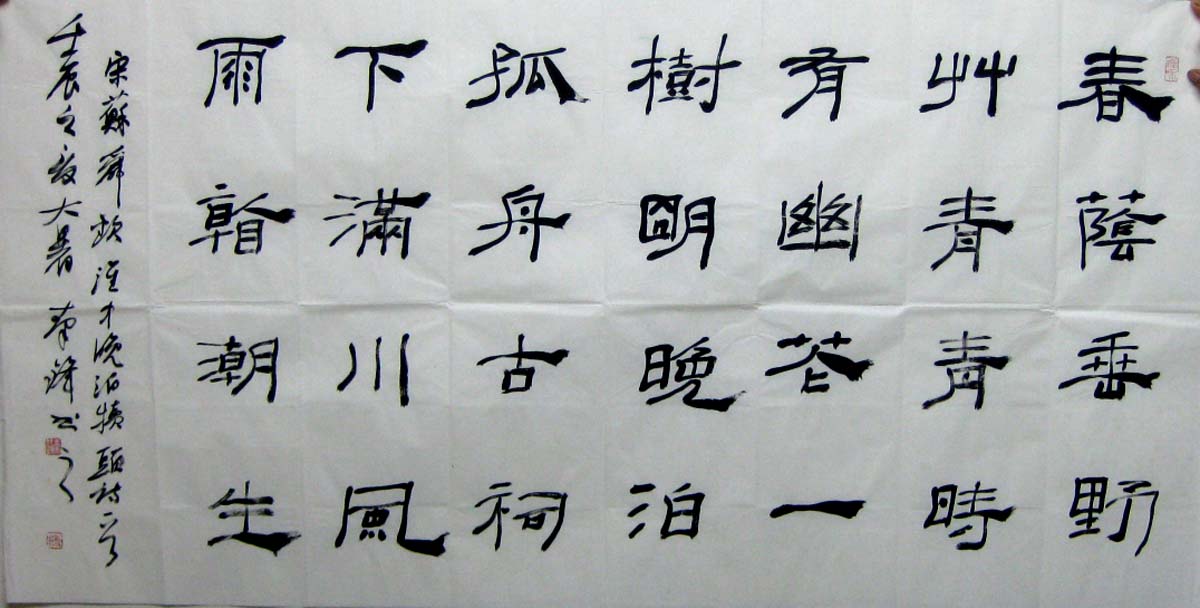 春蔭垂野
艸青青時
有幽花一
樹明晚泊
孤舟古祠
下滿川風
雨看潮生
宋蘇舜欽淮中晚泊犢頭詩一首
壬辰之夏大暑